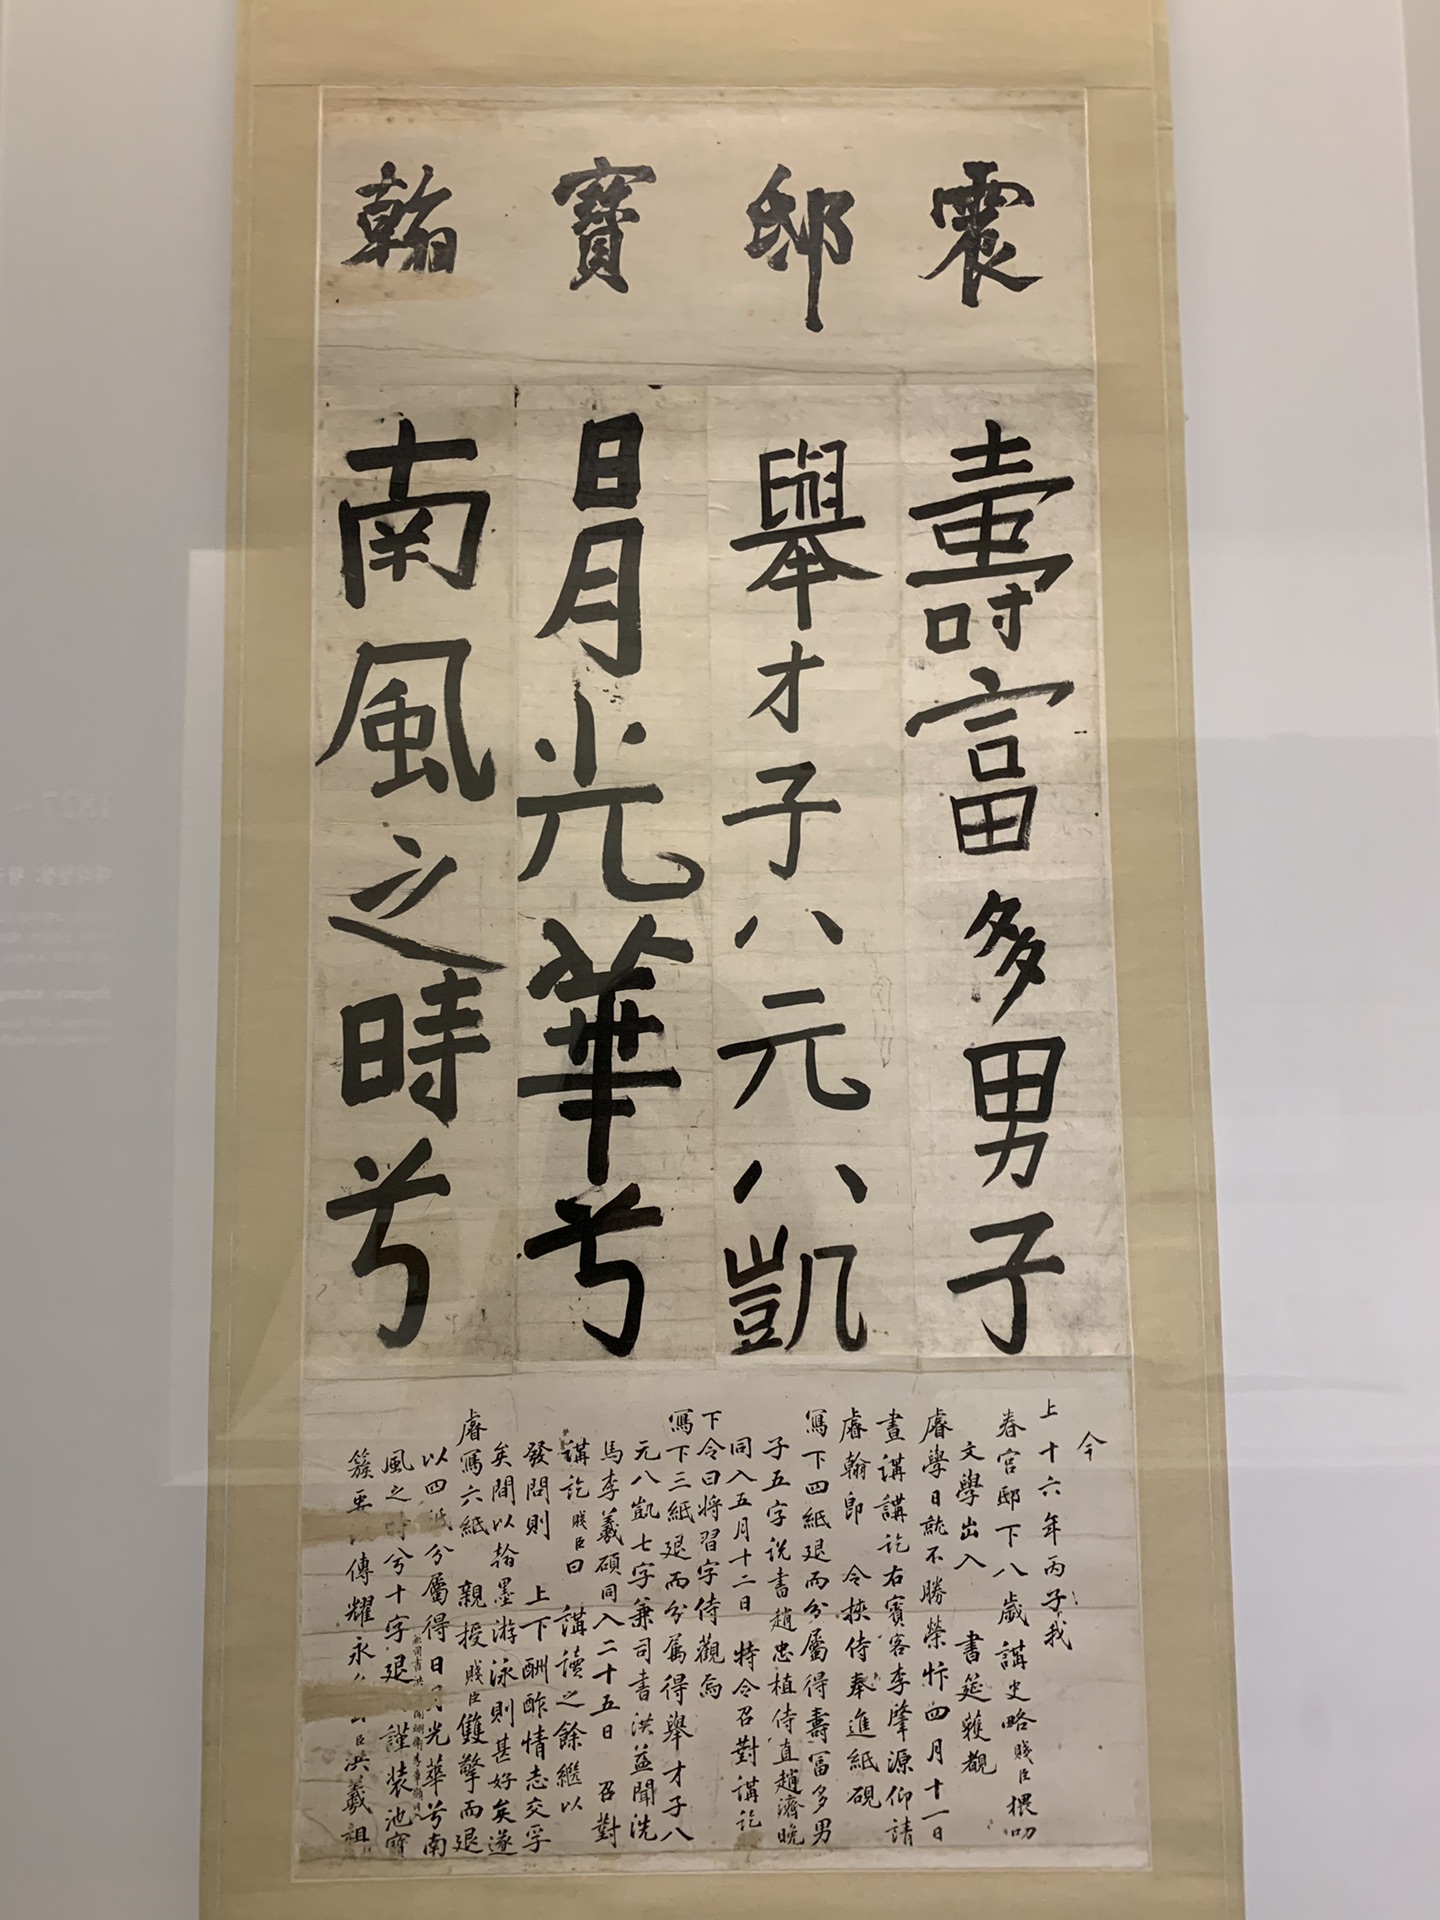 震邸寶翰
壽富多男子
舉才子八元八凱
日月光華兮
南風之時兮
今
上十六年丙子我
春宮邸下八歲講史略賤臣猥叨
文學出入 書筵獲覩
睿學日就不勝榮忭四月十一日
晝講講訖右賓客李肇源仰請
睿翰卽 令挾侍奉進紙硯
寫下四紙退而分屬得壽富多男
子五字說書趙忠植侍直趙濟晩
同入五月十二日 特令召對講訖
下令曰將習字侍觀焉
寫下三紙退而分屬得舉才子八
元八凱七字兼司書洪益聞洗
馬李羲碩同入二十五日 召對
講訖賤臣曰 講讀之餘繼以
發問則 上下酬酢情志交孚
矣間以翰墨游泳則甚好矣遂
睿寫六紙 親授賤臣雙擎而退
以四紙分屬得日月光華兮南
風之時兮十字退 謹装池寶
傳耀永 臣洪羲祖